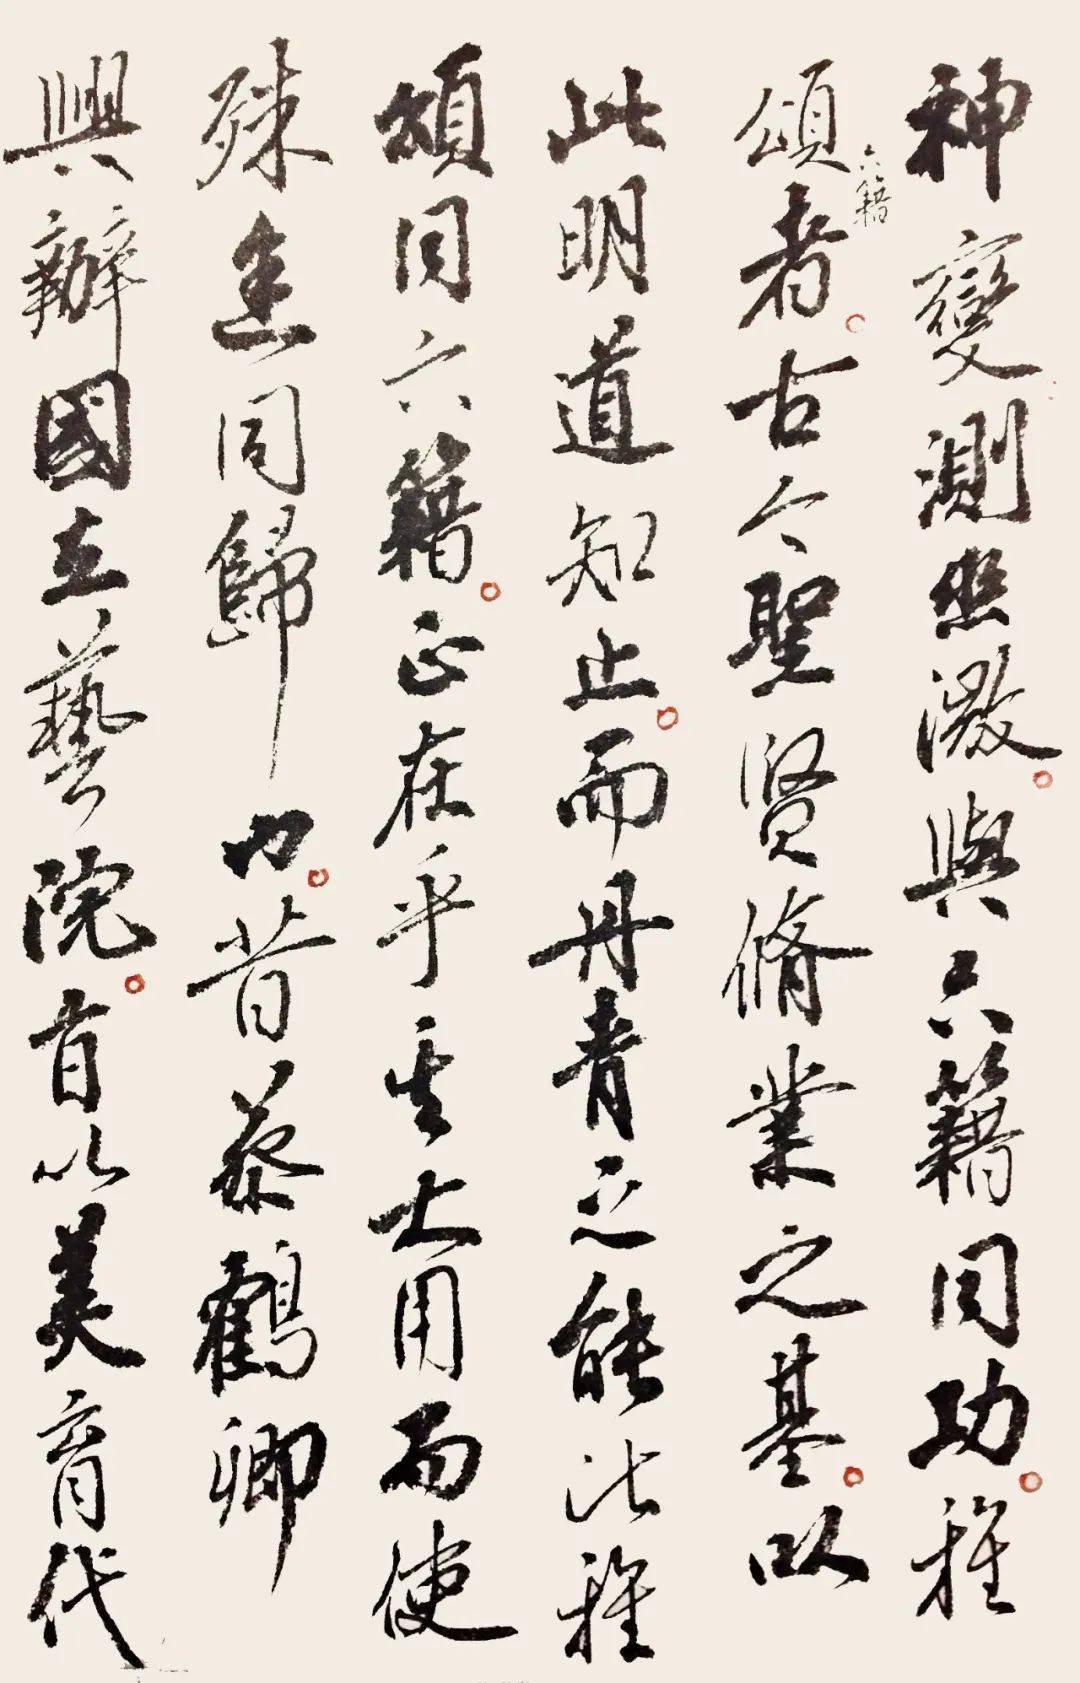 神變測幽微。與六籍同功。雅
頌六籍者。古今聖賢脩業之基。以
此明道知止。而丹青之能比雅
頌同六籍。正在乎其大用而使
殊途同歸也。昔蔡鶴卿
興辦國立藝院。首以美育代